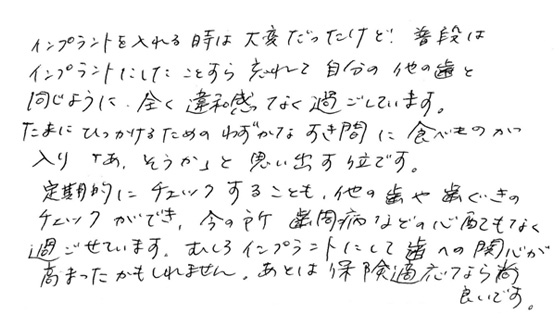 インプラントを入れる時は大変だったけど、普段は
インプラントにしたことすら忘れて自分の他の歯と
同じように、全く違和感なく過ごしています。
たまにひっかけるためのわずかなすき間に食べものが
入り「あ、そうか」と思い出す位です。
定期的にチェックすることも、他の歯や歯ぐきの
チェックができ、今の所 歯周病などの心配もなく
過ごせています。むしろインプラントにして歯への関心が
高まったかもしれません。あとは保険適応なら尚
良いです。